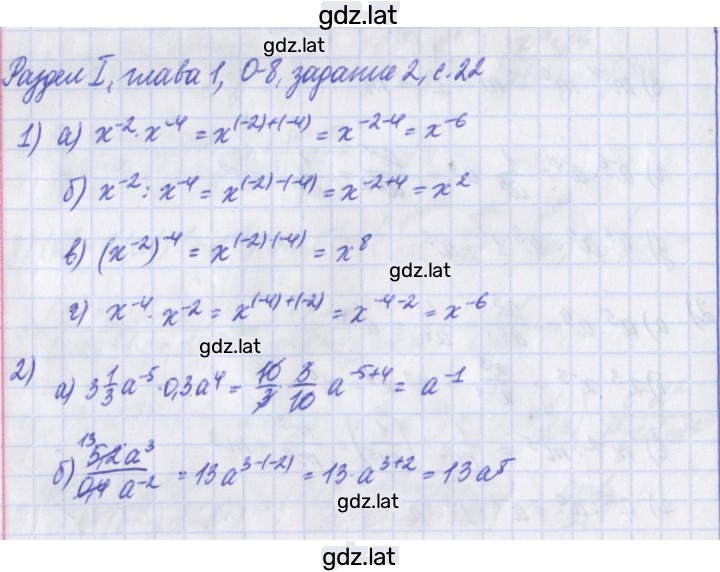 gdz.lat
gdz.lat
Раздел I, глава 1, О-8, задание 2, с. 22
1) а) x⁻² · x⁻⁴ = x⁽⁻²⁾⁺⁽⁻⁴⁾ = x⁻²⁻⁴ = x⁻⁶
б) x⁻² : x⁻⁴ = x⁽⁻²⁾⁻⁽⁻⁴⁾ = x⁻²⁺⁴ = x²
в) (x⁻²)⁻⁴ = x^(-2)·(-4) = x⁸
gdz.lat
г) x⁻⁴ · x⁻² = x⁽⁻⁴⁾⁺⁽⁻²⁾ = x⁻⁴⁻² = x⁻⁶
gdz.lat
2) а) 3 1/3 a⁻⁵ · 0,3a⁴ = 10/3 · 3/10 a⁻⁵⁺⁴ = a⁻¹
б) 13 5,2a³/0,4a⁻² = 13a³⁻⁽⁻²⁾ = 13·a³⁺² = 13a⁵
gdz.lat
gdz.lat